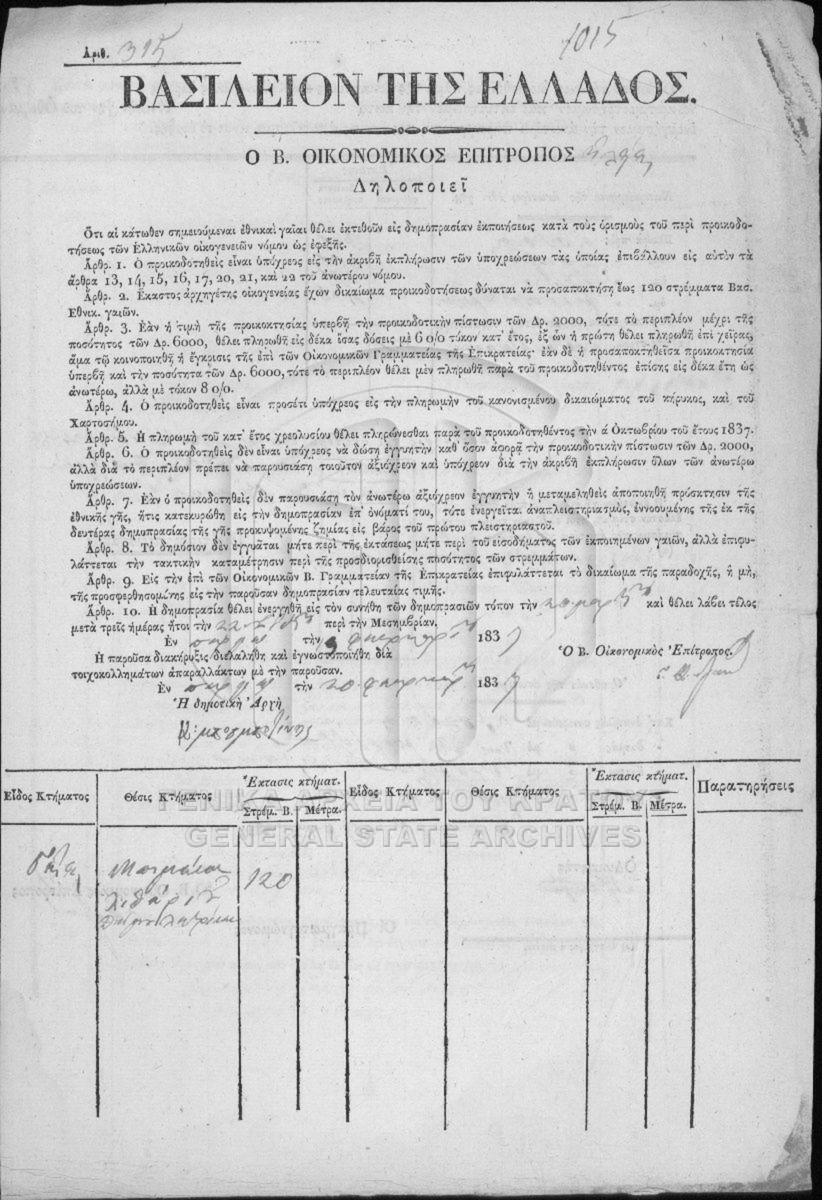 Ἀριθ. 315
1015
ΒΑΣΙΛΕΙΟΝ ΤΗΣ ΕΛΛΑΔΟΣ.
Ο Β. ΟΙΚΟΝΟΜΙΚΟΣ ΕΠΙΤΡΟΠΟΣ
Δηλοποιεῖ
Ὅτι αἱ κάτωθεν σημειούμεναι ἐθνικαὶ γαῖαι θέλει ἐκτεθοῦν εἰς δημοπρασίαν ἐκποιήσεως κατὰ τοὺς ὁρισμοὺς τοῦ περὶ προικοδο-
τήσεως τῶν Ἑλληνικῶν οἰκογενειῶν νόμου ὡς ἐφεξῆς.
Ἄρθρ. 1. Ὁ προικοδοτηθεὶς εἶναι ὑπόχρεος εἰς τὴν ἀκριβῆ ἐκπλήρωσιν τῶν ὑποχρεώσεων τὰς ὁποίας ἐπιβάλλουν εἰς αὐτὸν τὰ
ἄρθρα 13, 14, 15, 16, 17, 20, 21, καὶ 22 τοῦ ἀνωτέρου νόμου.
Ἄρθρ. 2. Ἕκαστος ἀρχηγέτης οἰκογενείας ἔχων δικαίωμα προικοδοτήσεως δύναται νὰ προσαποκτήσῃ ἕως 120 στρέμματα Βασ.
Ἐθνικ. γαιῶν.
Ἄρθρ. 3. Ἐὰν ἡ τιμὴ τῆς προικοκτησίας ὑπερβῇ τὴν προικοδοτικὴν πίστωσιν τῶν Δρ. 2000, τότε τὸ περιπλέον μέχρι τῆς
ποσότητος τῶν Δρ. 6000, θέλει πληρωθῆ εἰς δέκα ἴσας δόσεις μὲ 6 ο/ο τόκον κατ᾽ ἔτος, ἐξ ὧν ἡ πρώτη θέλει πληρωθῆ ἐπὶ χεῖρας,
ἅμα τῷ κοινοποιηθῇ ἡ ἔγκρισις τῆς ἐπὶ τῶν Οἰκονομικῶν Γραμματείας τῆς Ἐπικρατείας· ἐὰν δὲ ἡ προσαποκτηθεῖσα προικοκτησία
ὑπερβῇ καὶ τὴν ποσότητα τῶν Δρ. 6000, τότε τὸ περιπλέον θέλει μὲν πληρωθῆ παρὰ τοῦ προικοδοτηθέντος ἐπίσης εἰς δέκα ἔτη ὡς
ἀνωτέρω, ἀλλὰ μὲ τόκον 8 ο/ο.
Ἄρθρ. 4. Ὁ προικοδοτηθεὶς εἶναι προσέτι ὑπόχρεος εἰς τὴν πληρωμὴν τοῦ κανονισμένου δικαιώματος τοῦ κήρυκος, καὶ τοῦ
Χαρτοσήμου.
Ἄρθρ. 5. Ἡ πληρωμὴ τοῦ κατ᾽ ἔτος χρεολυσίου θέλει πληρώνεσθαι παρὰ τοῦ προικοδοτηθέντος τὴν ά Ὀκτωβρίου τοῦ ἔτους 1837.
Ἄρθρ. 6. Ὁ προικοδοτηθεὶς δὲν εἶναι ὑπόχρεος νὰ δώσῃ ἐγγυητὴν καθ᾽ ὅσον ἀφορᾷ τὴν προικοδοτικὴν πίστωσιν τῶν Δρ. 2000,
ἀλλὰ διὰ τὸ περιπλέον πρέπει νὰ παρουσιάσῃ τοιοῦτον ἀξιόχρεον καὶ ὑπόχρεον διὰ τὴν ἀκριβῆ ἐκπλήρωσιν ὅλων τῶν ἀνωτέρω
ὑποχρεώσεων.
Ἄρθρ. 7. Ἐὰν ὁ προικοδοτηθεὶς δὲν παρουσιάσῃ τὸν ἀνωτέρω ἀξιόχρεον ἐγγυητὴν ἢ μεταμεληθεὶς ἀποποιηθῇ πρόσκτησιν τῆς
ἐθνικῆς γῆς, ἥτις κατεκυρώθη εἰς τὴν δημοπρασίαν ἐπ᾽ ὀνόματί του, τότε ἐνεργεῖται ἀναπλειστηριασμὸς, ἐννοουμένης τῆς ἐκ τῆς
δευτέρας δημοπρασίας τῆς γῆς προκυψομένης ζημίας εἰς βάρος τοῦ πρώτου πλειστηριαστοῦ.
Ἄρθρ. 8. Τὸ δημόσιον δὲν ἐγγυᾶται μήτε περὶ τῆς ἐκτάσεως μήτε περὶ τοῦ εἰσοδήματος τῶν ἐκποιημένων γαιῶν, ἀλλὰ ἐπιφυ-
λάττεται τὴν τακτικὴν καταμέτρησιν περὶ τῆς προσδιορισθείσης ποσότητος τῶν στρεμμάτων.
Ἄρθρ. 9. Εἰς τὴν ἐπὶ τῶν Οἰκονομικῶν Β. Γραμματείαν τῆς Ἐπικρατείας ἐπιφυλάττεται τὸ δικαίωμα τῆς παραδοχῆς, ἢ μὴ,
τῆς προσφερθησομένης εἰς τὴν παροῦσαν δημοπρασίαν τελευταίας τιμῆς.
Ἄρθρ. 10. Ἡ δημοπρασία θέλει ἐνεργηθῆ εἰς τὸν συνήθη τῶν δημοπρασιῶν τόπον τὴν 20 καὶ θέλει λάβει τέλος
μετὰ τρεῖς ἡμέρας ἤτοι τὴν 22 περὶ τὴν Μεσημβρίαν.
Ἐν τὴν 9 1837
Ὁ Β. Οἰκονομικὸς Ἐπίτροπος.
Ἡ παροῦσα διακήρυξις διελαλήθη καὶ ἐγνωστοποιήθη διὰ
τοιχοκολλημάτων ἀπαραλλάκτων μὲ τὴν παροῦσαν.
Ἐν τὴν 20 1837
Ἡ δημοτικὴ Ἀρχὴ
Εἶδος Κτήματος Θέσις Κτήματος Ἔκτασις κτήματ. Εἶδος Κτήματος Θέσις Κτήματος Ἔκτασις κτήματ. Παρατηρήσεις
Στρέμ. Β. Μέτρα. Στρέμ. Β. Μέτρα.
120
ΓΕΝΙΚΑ ΑΡΧΕΙΑ ΤΟΥ ΚΡΑΤΟΥΣ
GENERAL STATE ARCHIVES